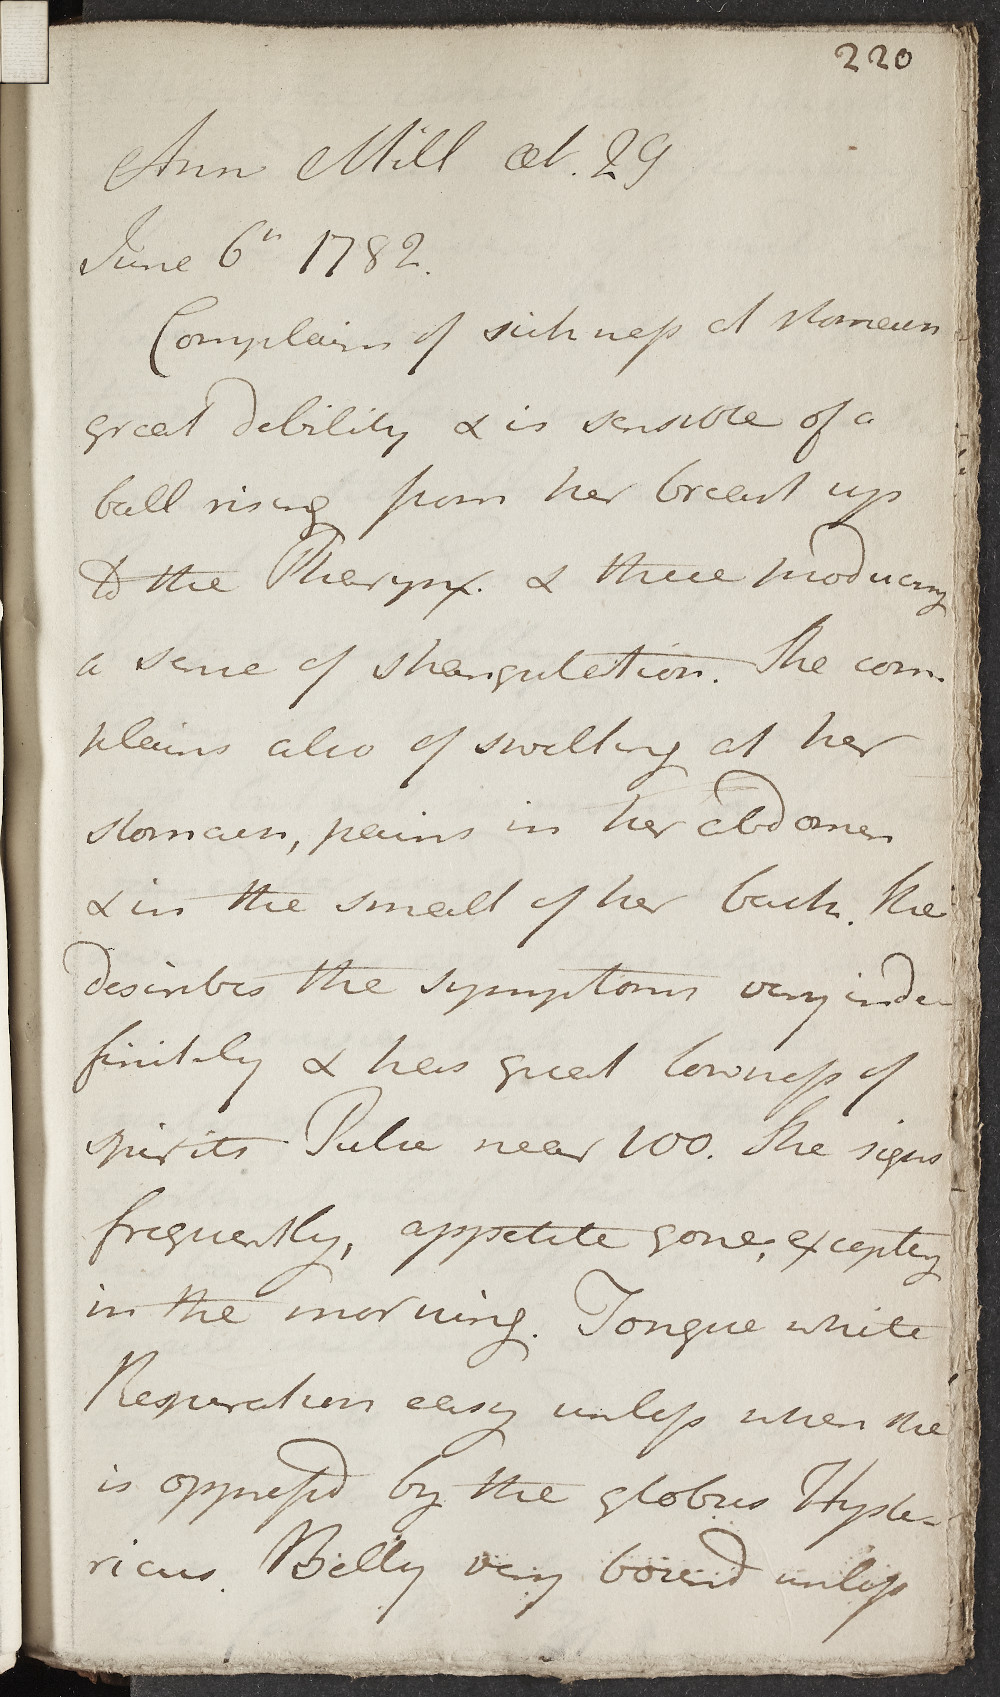 220
Ann Mill æt. 29
June 6th 1782.
Complains of sickness at stomach
great debility & is sensible of a
ball rising from her breast up
to the Pharynx. & there producing
a sense of strangulation. She com-
plains also of swelling at her
stomach, pains in her abdomen
& in the small of her back. She
describes the symptoms very inde-
finitely & has great lowness of
spirits Pulse near 100. She sighs
frequently, appetite gone, excepting
in the morning. Tongue white
Respiration easy unless when she
is oppress'd by the globus Hyste-
ricus. Belly very bound unless